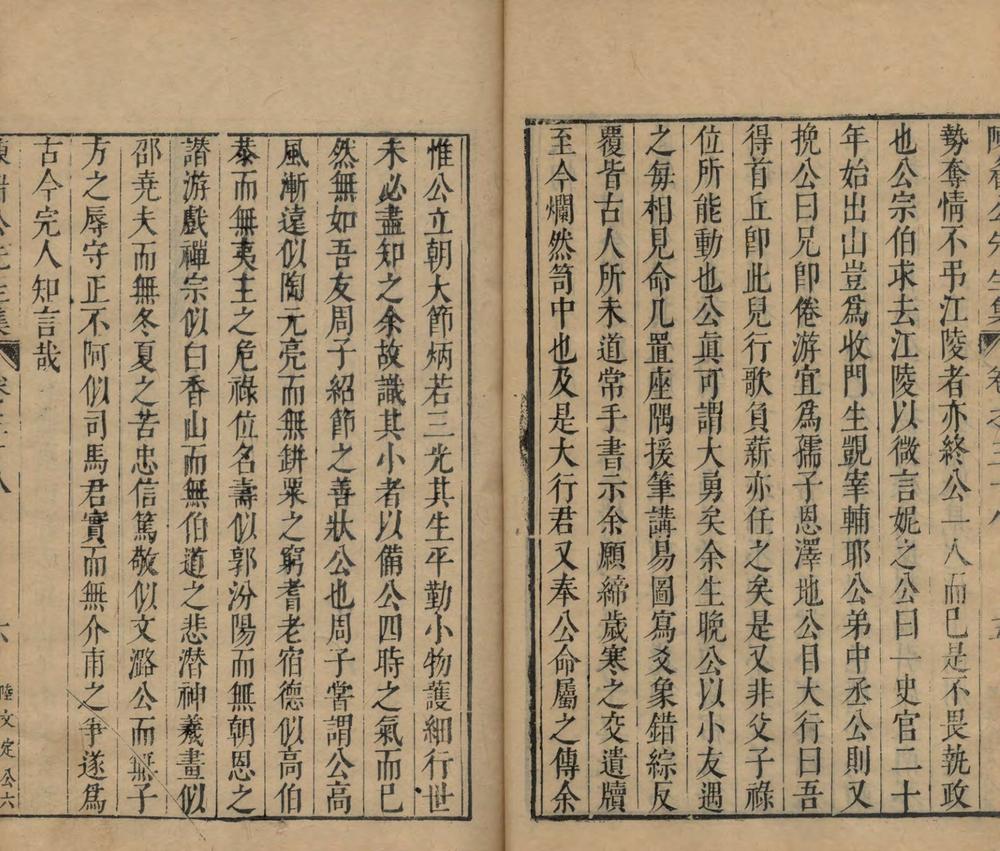 勢奪情不弔江陵者亦終公一人而已是不畏執政
也公宗伯求去江陵以微言妮之公曰一史官二十
年始出山豈爲收門生覬宰輔耶公弟中丞公則又
挽公曰兄卽倦游宜爲孺子恩澤地公目大行曰吾
得首丘卽此兒行歌負薪亦任之矣是又非父子祿
位所能動也公眞可謂大勇矣余生晚公以小友遇
之每相見命几置座隅援筆講易圖寫爻象錯綜反
覆皆古人所未道常手書示余願締歲寒之交遺牘
至今爛然笥中也及是大行君又奉公命屬之傳余
惟公立朝大節炳若三光其生平勤小物護細行世
未必盡知之余故識其小者以備公四時之氣而已
然無如吾友周子紹節之善狀公也周子嘗謂公高
風漸遠似陶元亮而無缾粟之窮耆老宿德似高伯
恭而無夷主之危祿位名壽似郭汾陽而無朝恩之
譖游戲禪宗似白香山而無伯道之悲潛神羲畫似
邵堯夫而無冬夏之苦忠信篤敬似文潞公而無子
方之辱守正不阿似司馬君實而無介甫之爭遂爲
古今完人知言哉
六
陸文定公六